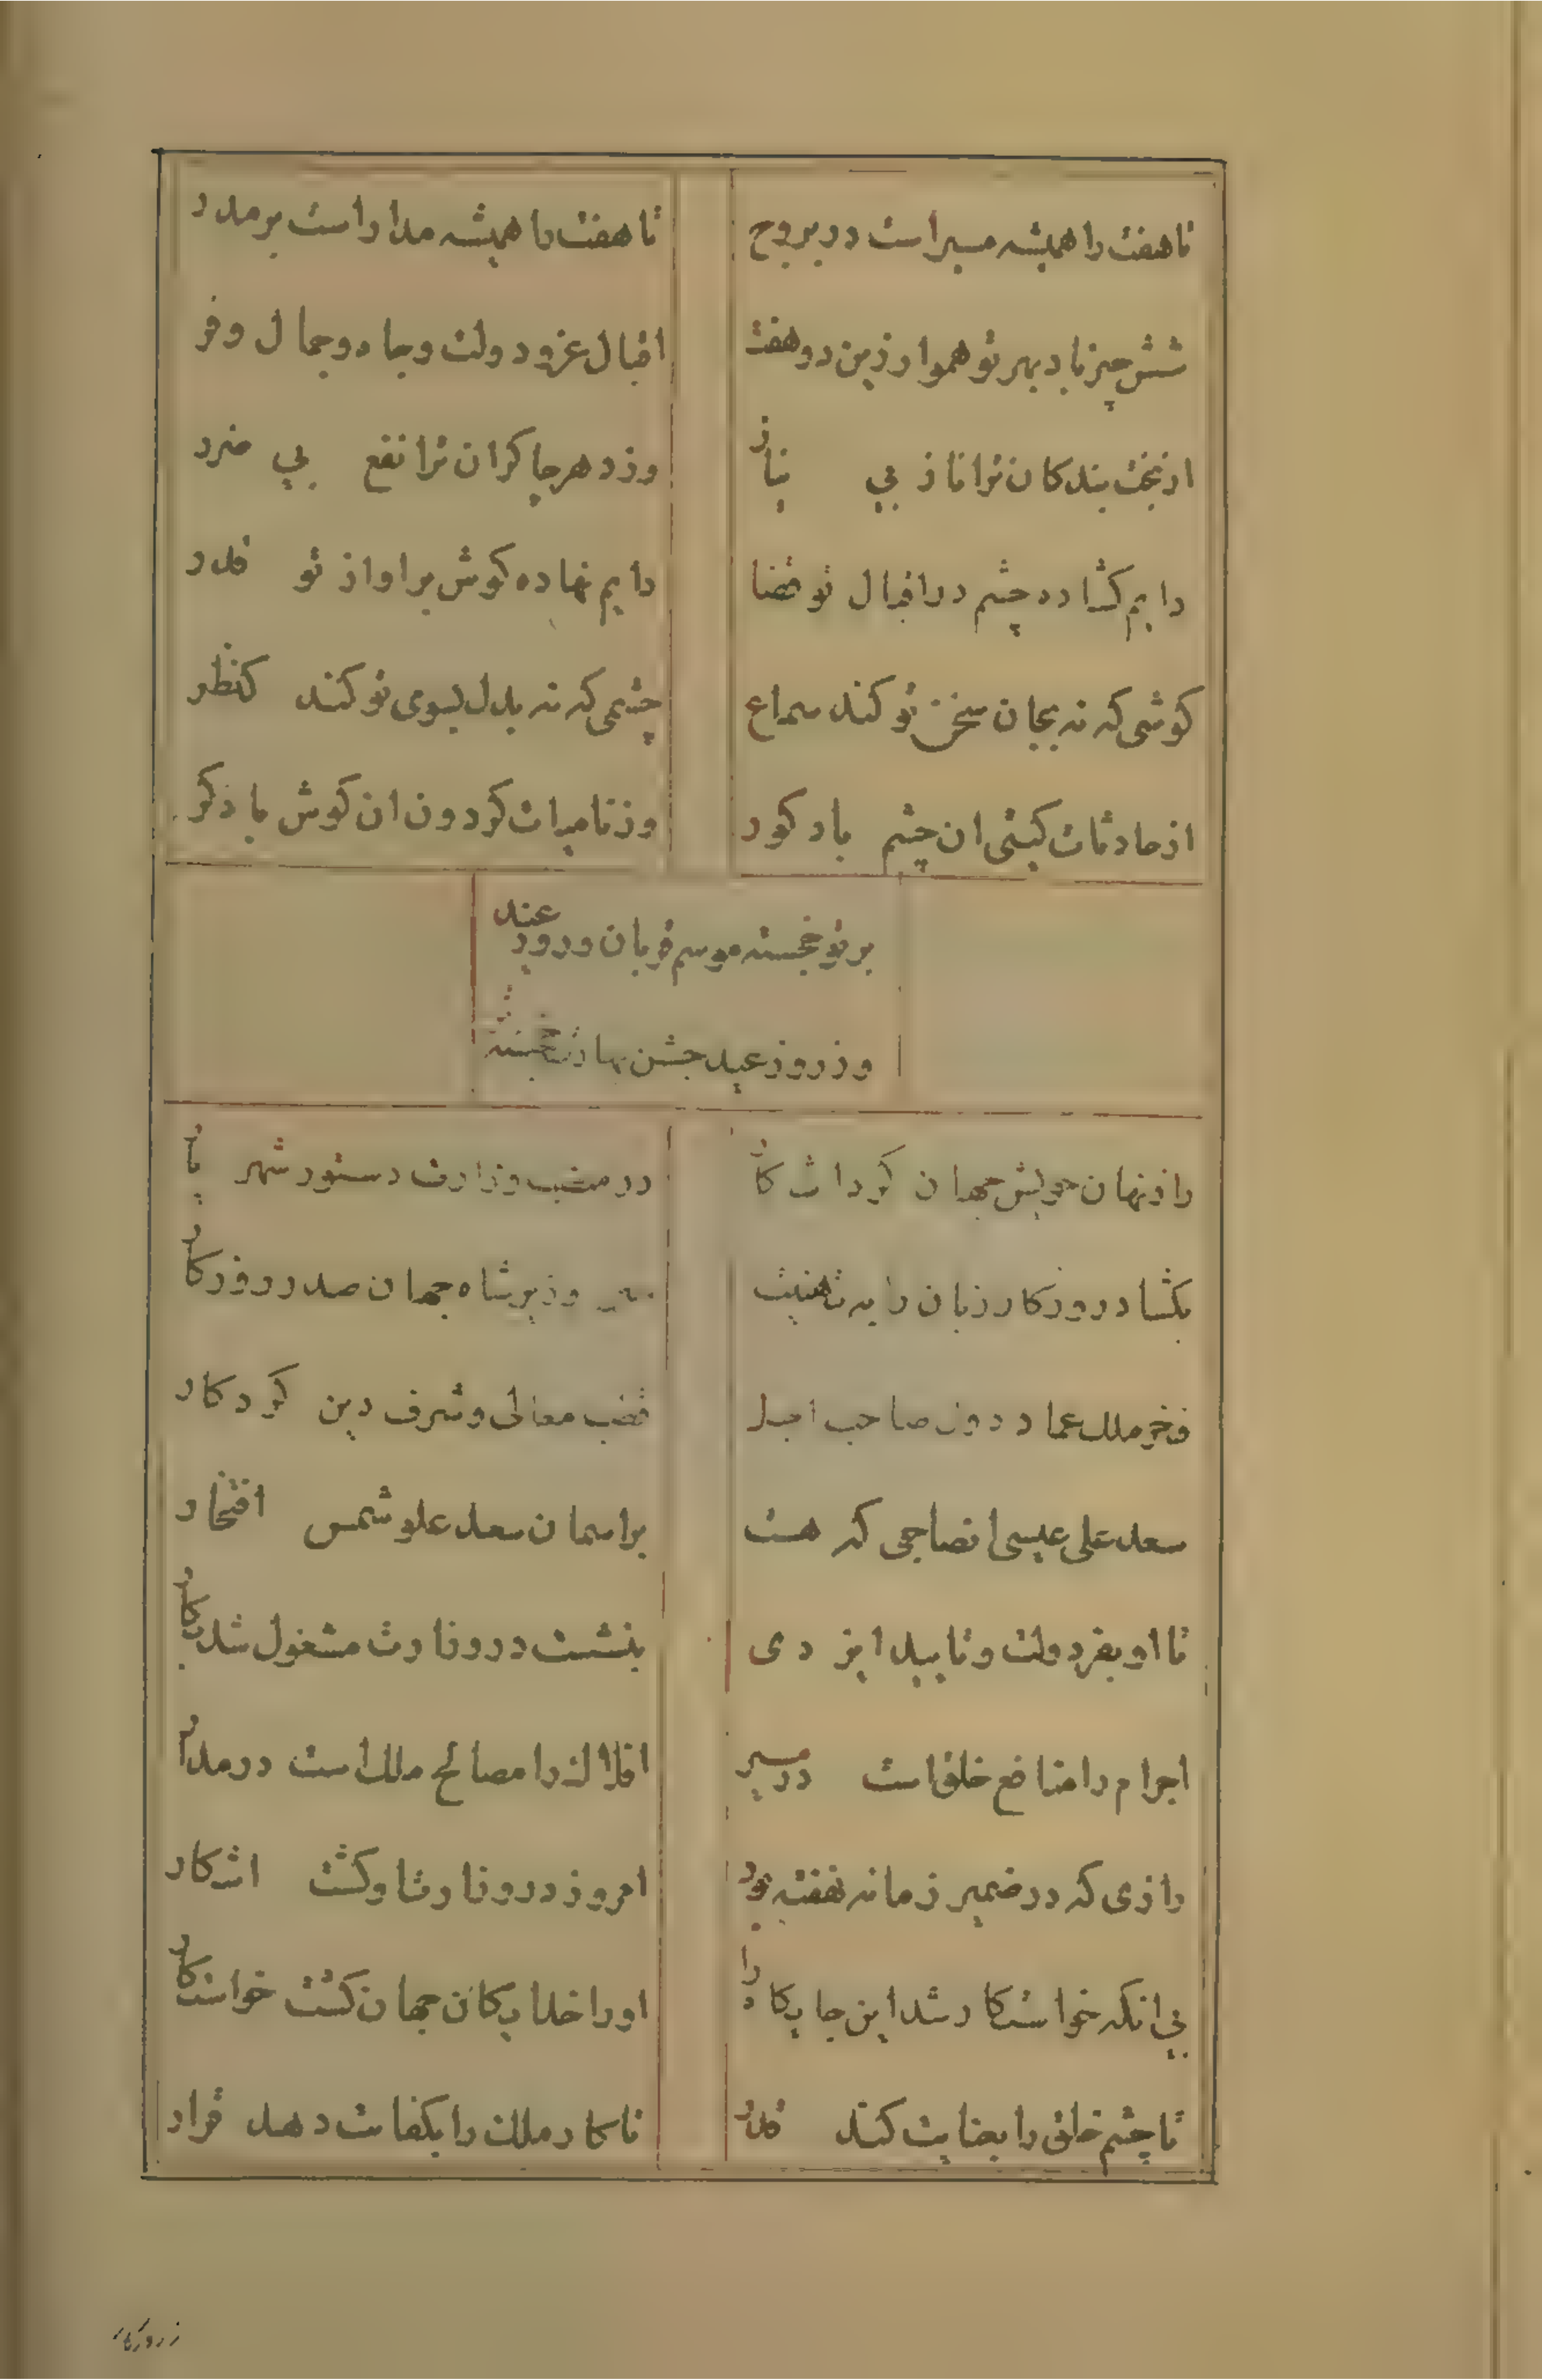 تا هفت را همیشه مسیر است در بروج
تا هفت را همیشه مدار است بر مدر
شش چیز باد بهر تو هموار زین دو هفت
اقبال عز و دولت و جاه و جمال و فر
از بخت بندکان ترا ناز بی نیاز
وز دهر چاکران ترا نفع بی ضرر
دایم کشاده چشم در اقبال تو قضا
دایم نهاده کوش بر اواز تو قدر
کوشی که نه بجان سخن تو کند سماع
چشمی که نه بدل بسوی تو کند نظر
از حادثات کیتی ان چشم باد کور
وز نامیات کردون ان کوش باد کر
بر تو خجسته موسم قربان و روز عید
وز روز عید جشن بهارت خجسته تر
راز نهان خویش جهان کرد اشکار
در منصب وزارت دستور شهریار
بکشاد روزکار زبان را به تهنیت
وزیر شاه جهان صدر روزکار
فخر ملل عماد دول صاحب اجل
قطب معالی و شرف دین کردکار
سعد علی عیسی ان صاحبی که هست
بر اسمان سعد علو شمس افتخار
تا او بفر دولت و تایید ایزدی
بنشست در وزارت مشغول شد بکار
اجرام را منافع خلق است در مسیر
افلاک را مصالح ملک است در مدار
رازی که در ضمیر زمانه نهفته بود
امروز در وزارت او کشت اشکار
بی انکه خواستکار شد این جایکاه را
او را خدایکان جهان کشت خواستکار
تا چشم خلق را بعنایت کند قریر
تا کار ملک را بکفایت دهد قرار
زروزکار